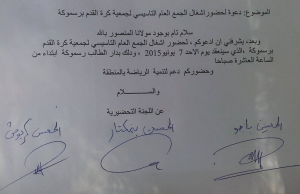 الموضوع: دعوة لحضور اشغال الجمع العام التاسيسي لجمعية كرة القدم برسموكة
سلام تام بوجود مولانا المنصور بالله
وبعد، يشرفني ان ادعوكم ، لحضور اشغال الجمع العام التاسيسي لجمعية كرة القدم
برسموكة ،الذي سينعقد يوم الاحد 7 يونيو2015 ، وذلك بدار الطالب رسموكة ابتداء من
الساعة العاشرة صباحا
وحضوركم دعم لتنمية الرياضة بالمنطقة
والسلام
عن اللجنة التحضيرية
الحسين
الحسين بيمكتار
الحسن